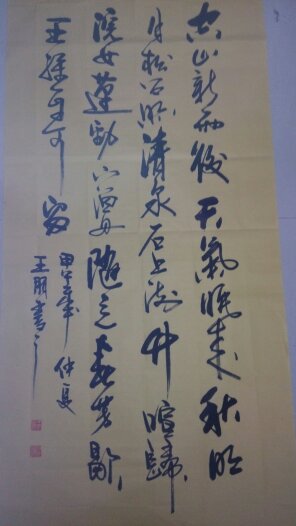 空山新雨後天氣晚来秋明
月松间照清泉石上流竹喧歸
浣女蓮動下渔舟隨意春芳歇
王孫自可留
甲午年仲夏
王朋書